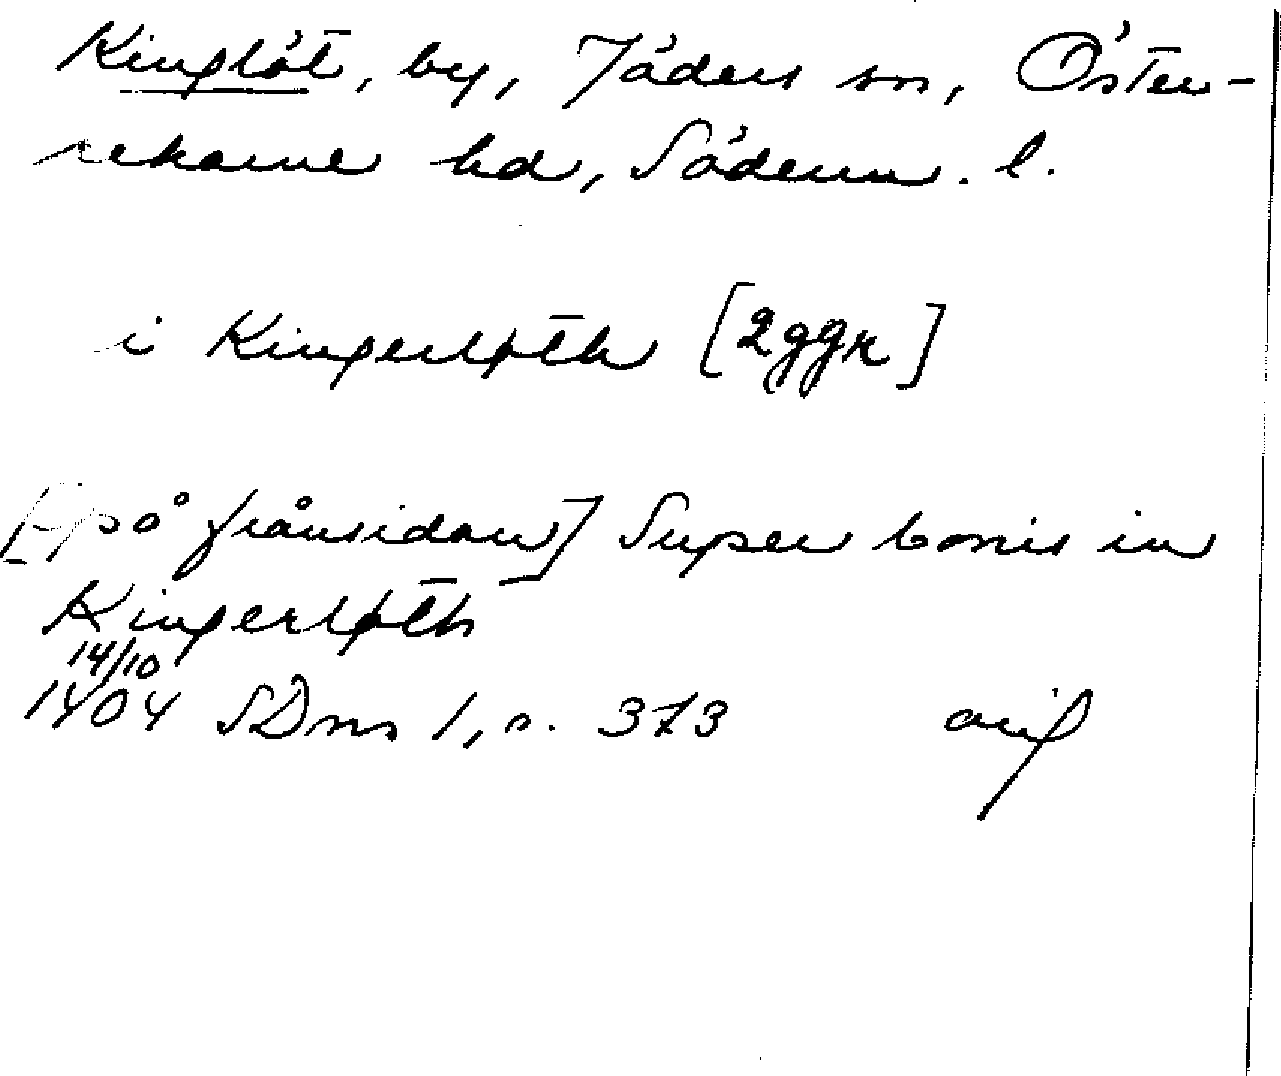 Kinglöt, by, Jäders sn, Öster-
rekarne hd, Söderm. l.
i Kingerløth [2 ggr]
[på frånsidan] Super bonis in
Kingerløth
14/10
1404 SDns 1, s. 373 orig